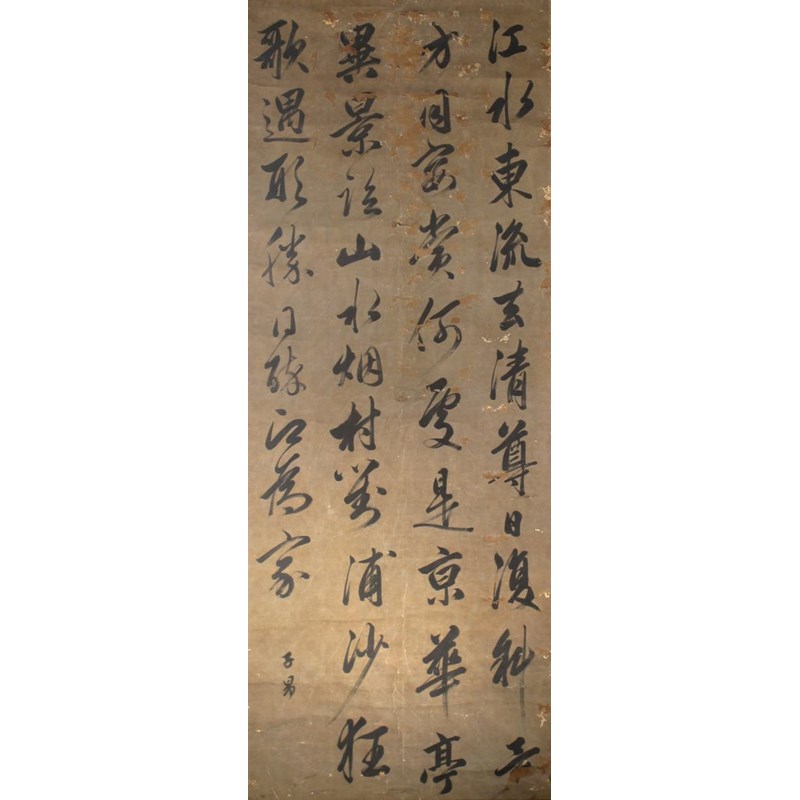 江水東流去清尊日復斜
方同宴賞何處是京華亭
異景臨山水烟村對浦沙狂
歌遇形勝日醉即為家
子昂